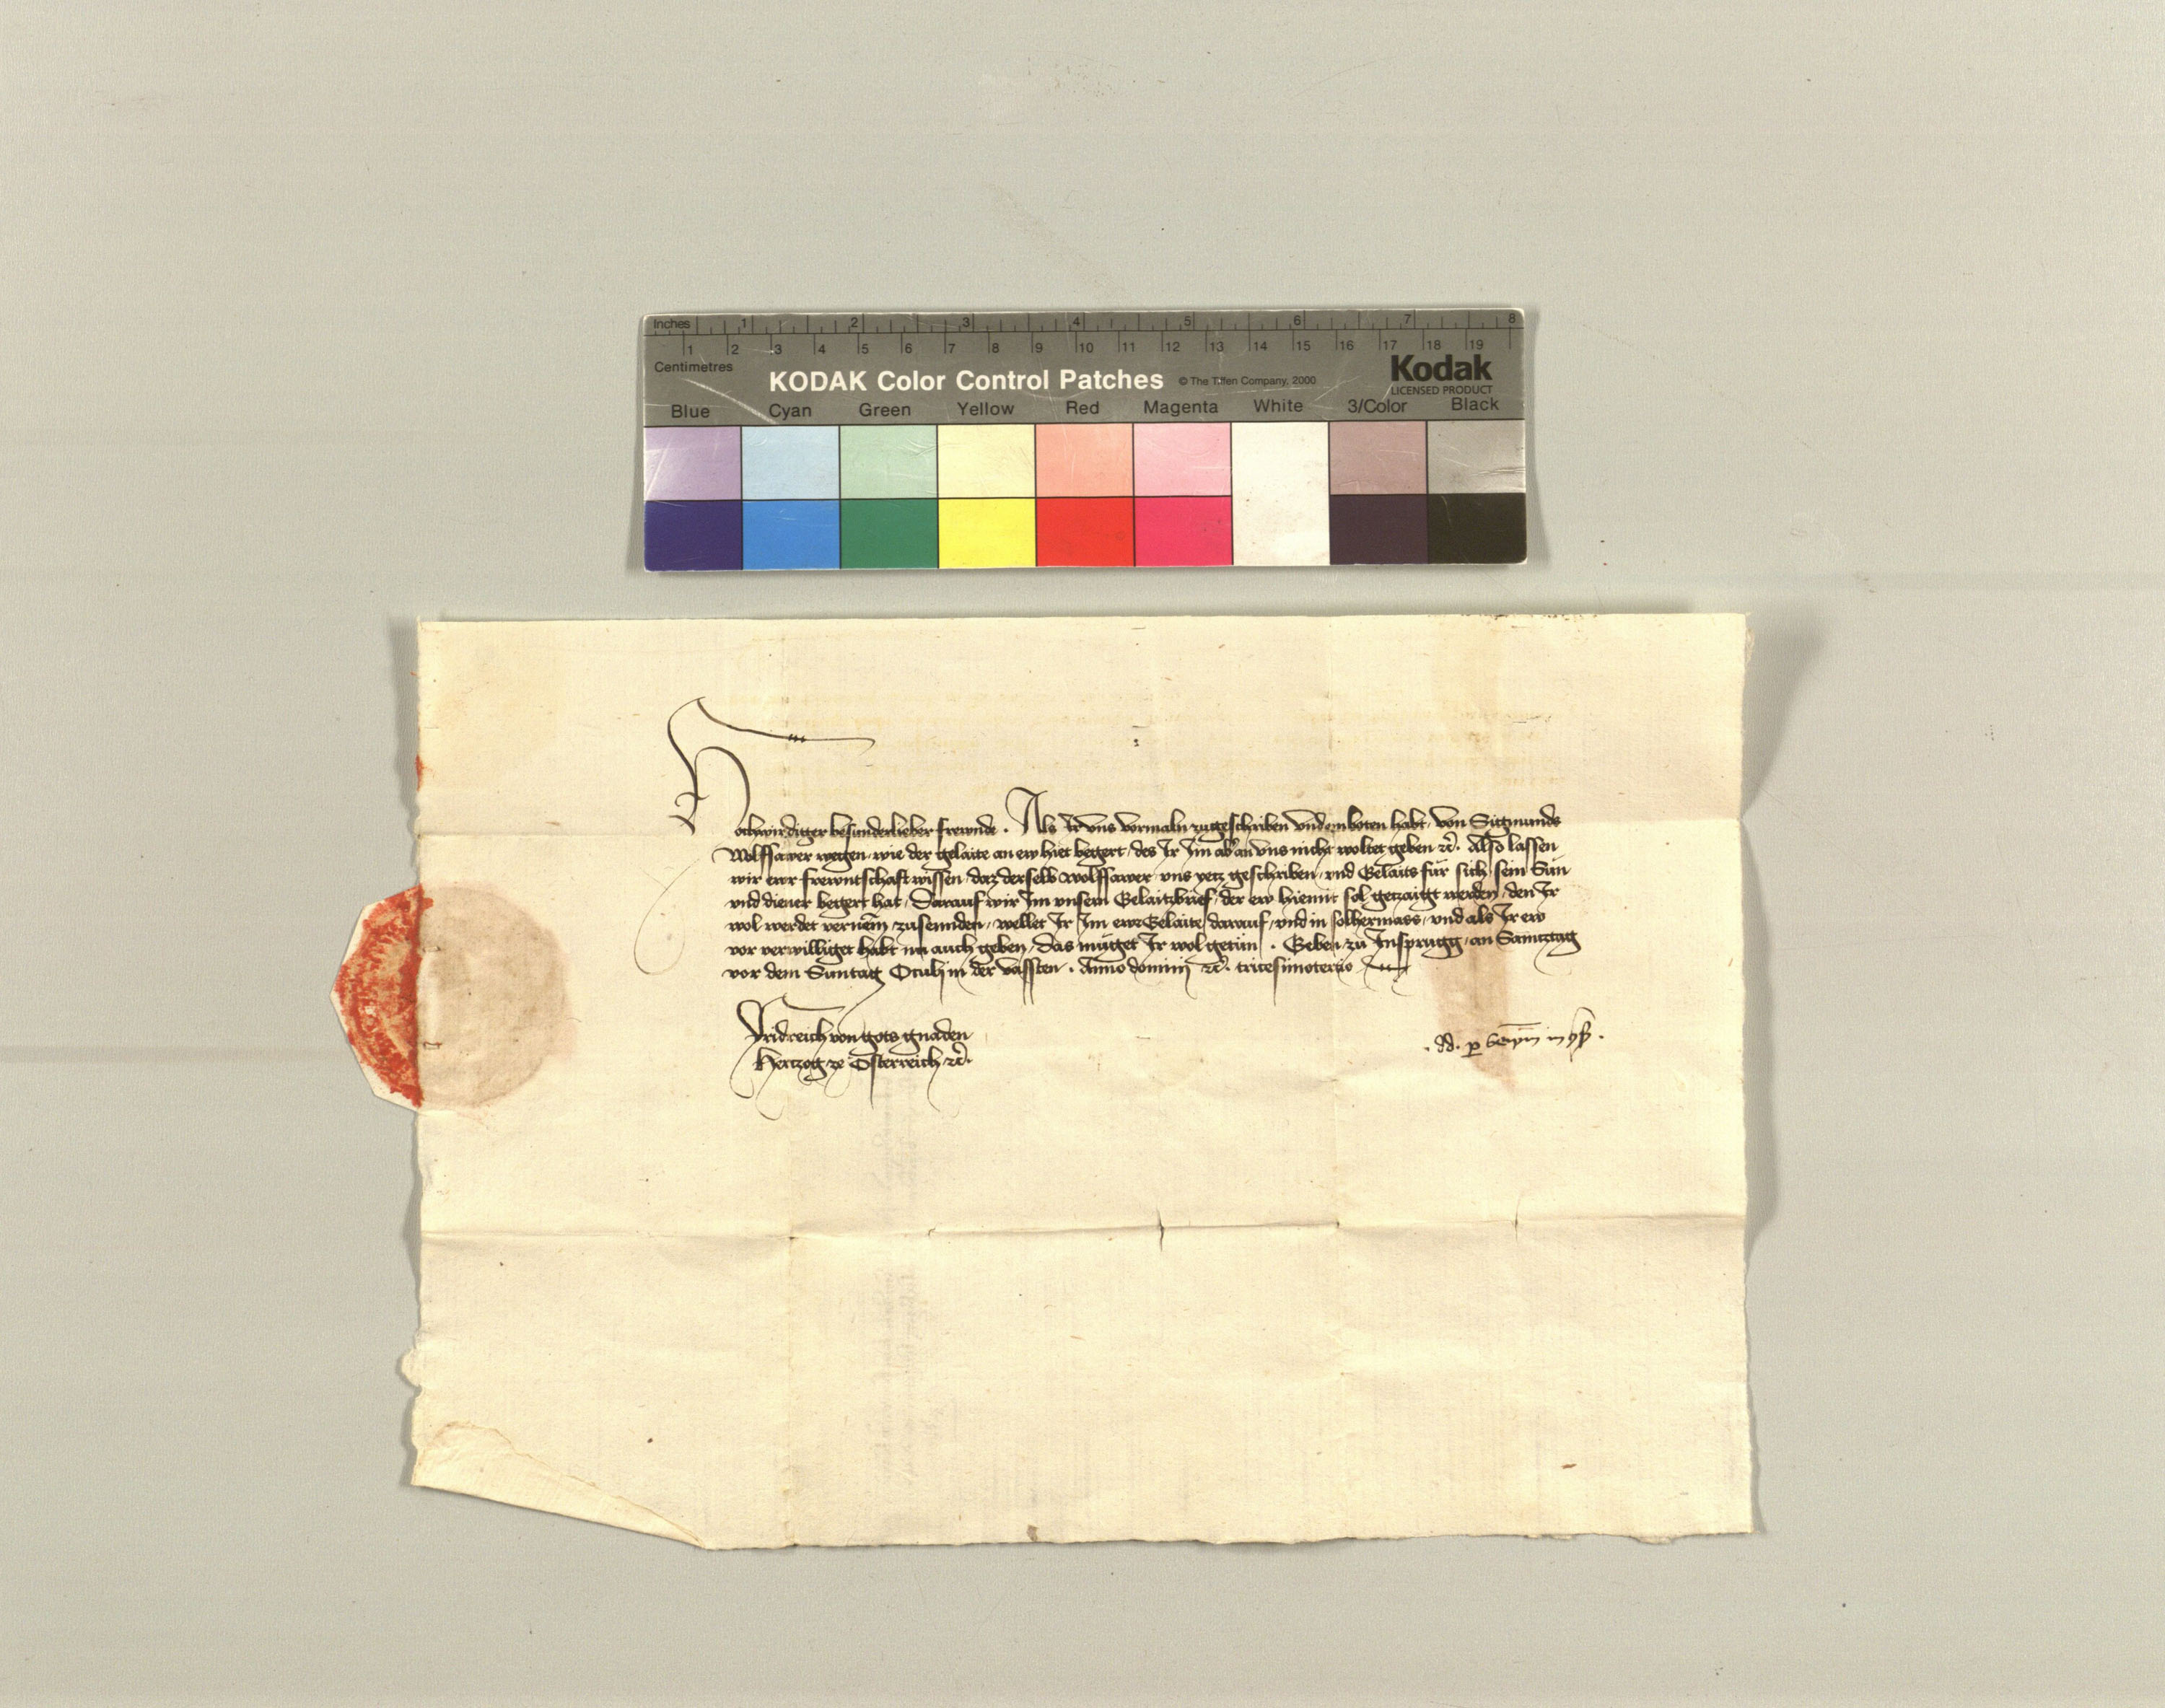 Inches 1 2 3 4 5 6 7 8
1 2 3 4 5 6 7 8 9 10 11 12 13 14 15 16 17 18 19
Centimetres
KODAK Color Control Patches © The Tiffen Company, 2000 Kodak
LICENSED PRODUCT
Blue Cyan Green Yellow Red Magenta White 3/Color Black
Hochwirdiger besunderlieber frewnde . Als Ir vns vormaln zugeschriben vnd emboten habt, von Sigmunds
Wolffsawer wegen, wie der gelaite an ew hiet begert, des Ir Im ab an vns nicht woltet geben etc. Also lassen
wir ewr frewntschaft wissen, daz derselb Wolffsawer vns yetz geschriben, vnd Gelaits für sich, sein Sün
vnd diener begert hat, Darauf wir Im vnsern Gelaitzbrief, der ew hiemit sol getzaigt werden, den Ir
wol werdet vernem̄ zusennden, wellet Ir Im ewr Gelaite darauf, vnd in solhermass, vnd als Ir ew
vor verwilliget habt nu auch geben, das müget Ir wol getün . Geben zu Insprugg, an Samtztag
vor dem Suntag Oculi in der vassten . Anno domini etc. tricesimotercio
Fridreich von gots gnaden
Hertzog ze Österreich etc.
. dd. p